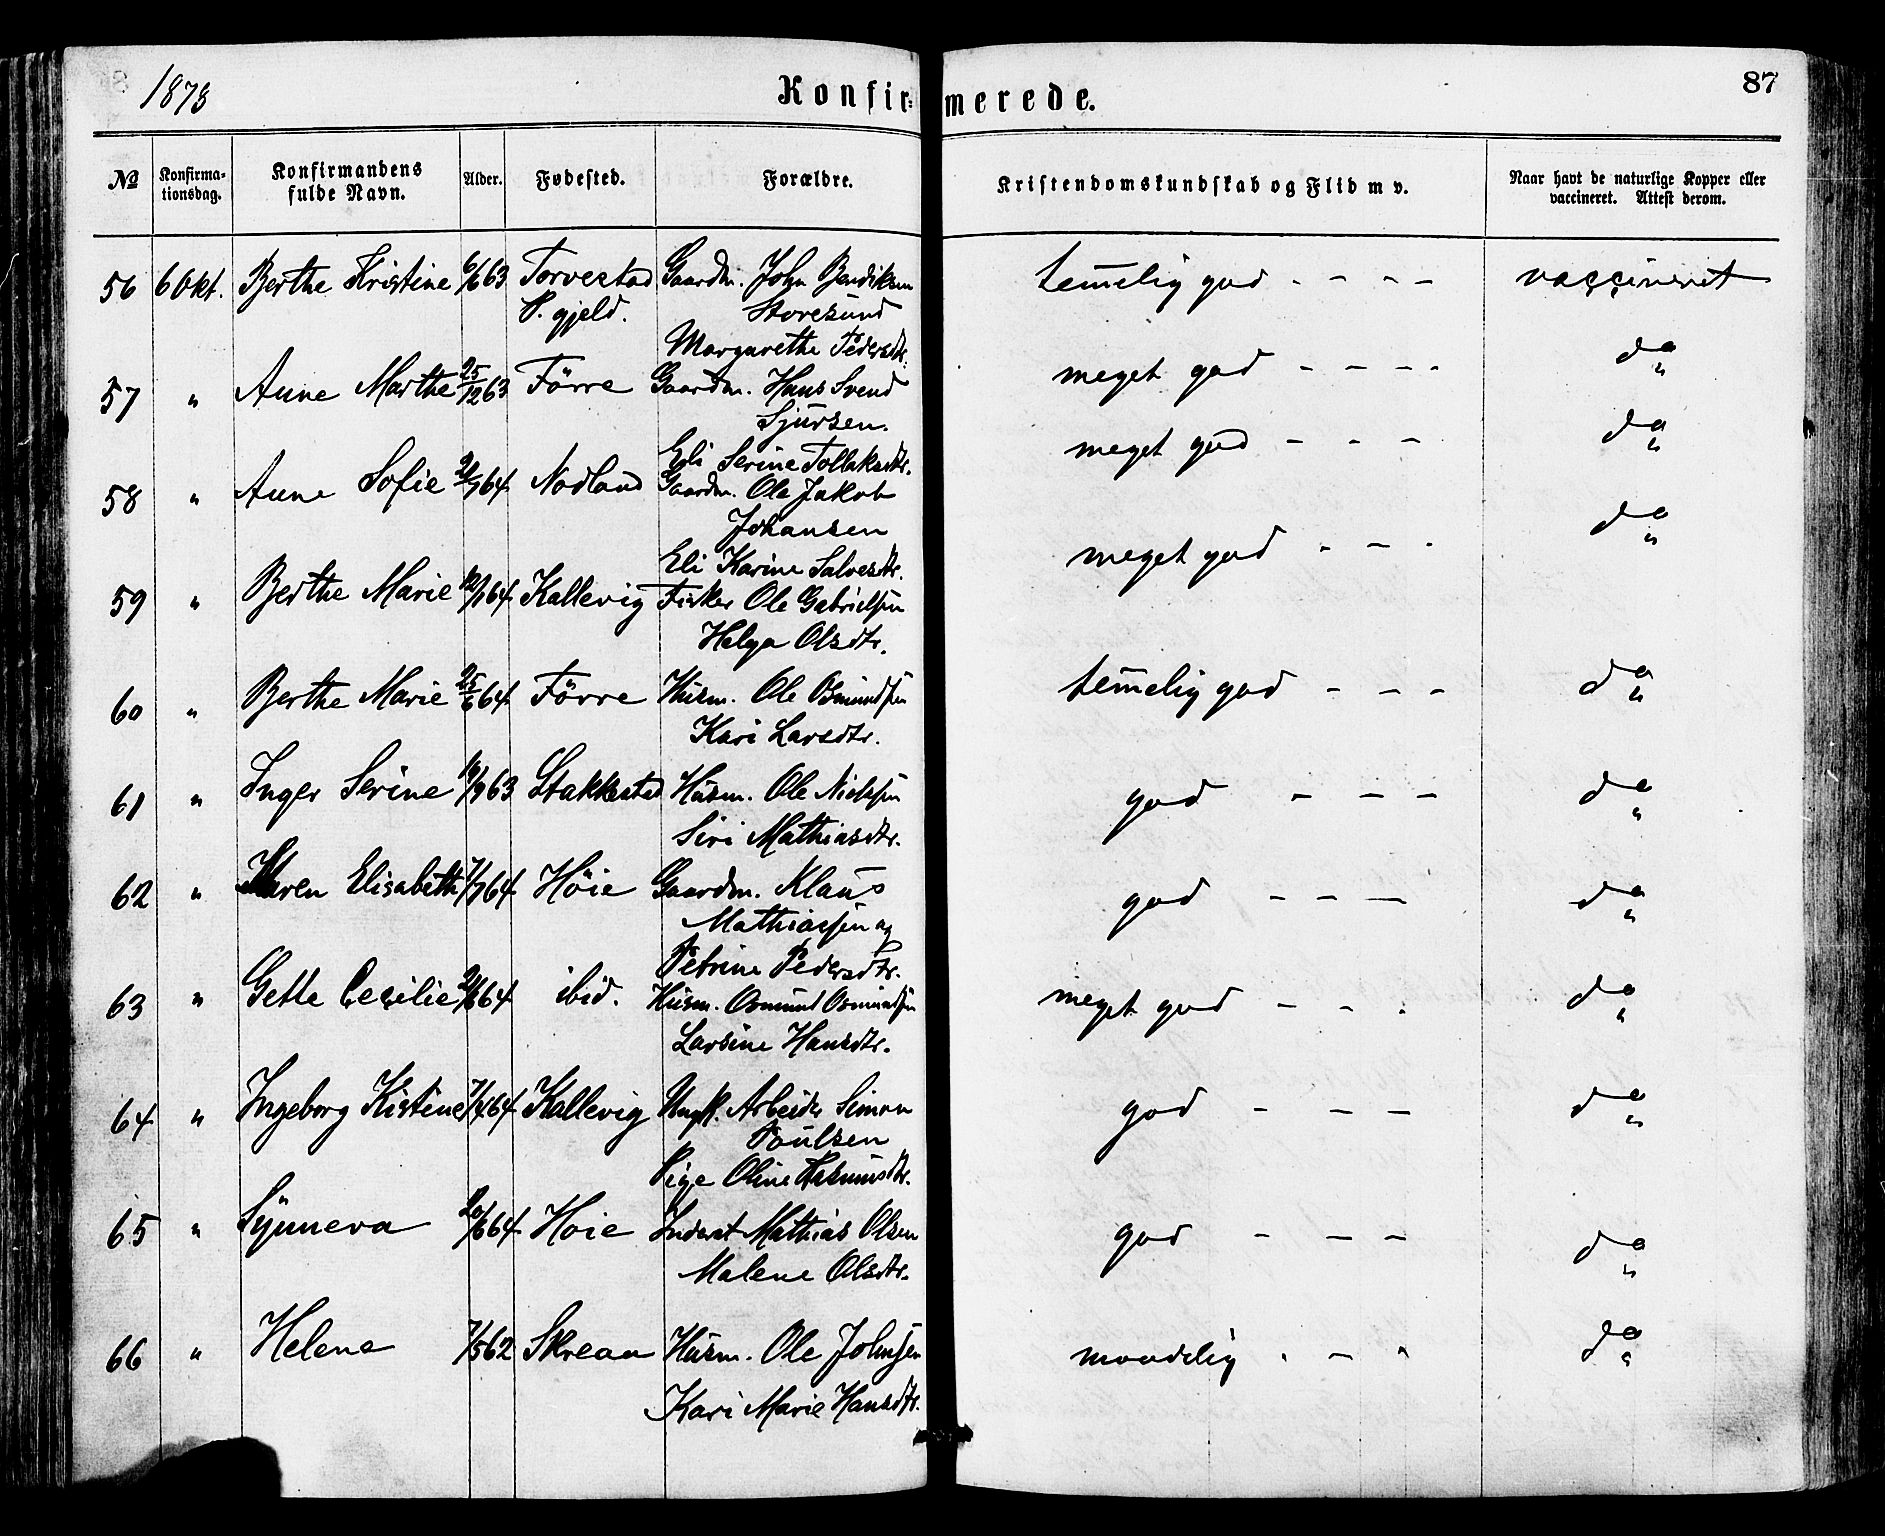 1878
Konfir- merede.
87
No
Konfirma-
tionsdag.
Konfirmandens
fulde Navn.
Alder.
Fødested.
Forældre.
Kristendomskundskab og Flid m v.
Naar havt de naturlige Kopper eller
vaccineret. Attest derom.
56 6 Okt. Berthe Kristine 6/6 63 Torvestad Gaardm. John Bendiksen temelig god - - - - vaccineret
P. gjeld. Storesund
Margarethe Pedersdtr.
57 " Anne Marthe 25/12 63 Förre Gaardm. Hans Svend meget god - - - - do "
Sjursen.
Eli Serine Tollaksdtr.
58 " Anne Sofie /7 64 Nodland Gaardm. Ole Jakob meget god - - - do "
Johansen
Eli Karine Salvesdtr.
59 " Berthe Marie 64 Kallevig Fisker Ole Gabrielsen meget god - - - do "
Helga Olsdtr.
60 " Berthe Marie 25/6 64 Förre Husm. Ole Osmundsen temelig god - - - do "
Kari Larsdtr.
61 " Inger Serine 63 Stakkestad Husm. Ole Nielsen god - - - do "
Siri Mathiasdtr.
62 " Karen Elisabeth 7/7 64 Höie Gaardm. Klaus god - - - do "
Mathiassen og
Petrine Pedersdtr.
63 " Gette Cecilie 64 ibid. Husm. Osmund Osmundsen meget god - - - do "
Larsine Hansdtr.
64 " Ingeborg Kistine 64 Kallevig Ungk. Arbeider Simon god - - - do "
Poulsen
Pige Oline Rasmusdtr.
65 " Synneva 64 Hoie Inderst Mathias Olsen god - - - do "
Malene Olsdtr.
66 " Helene 7/5 62 Skreaa Husm. Ole Johnsen maadelig - - - do "
Kari Marie Hansdtr.